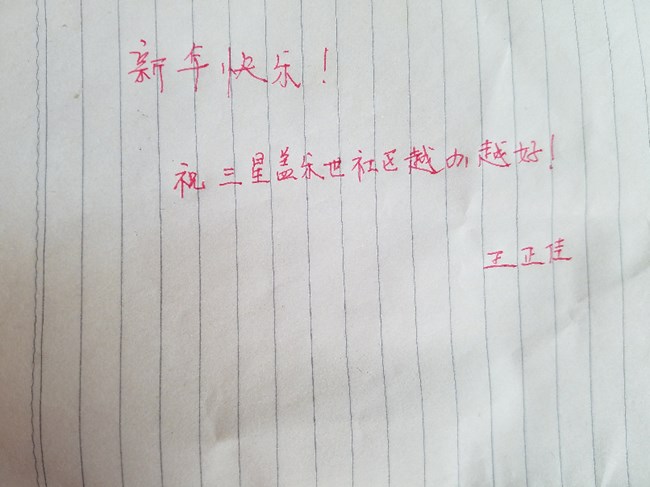 新年快乐!
祝三星盖乐世社区越办越好!
王正佳